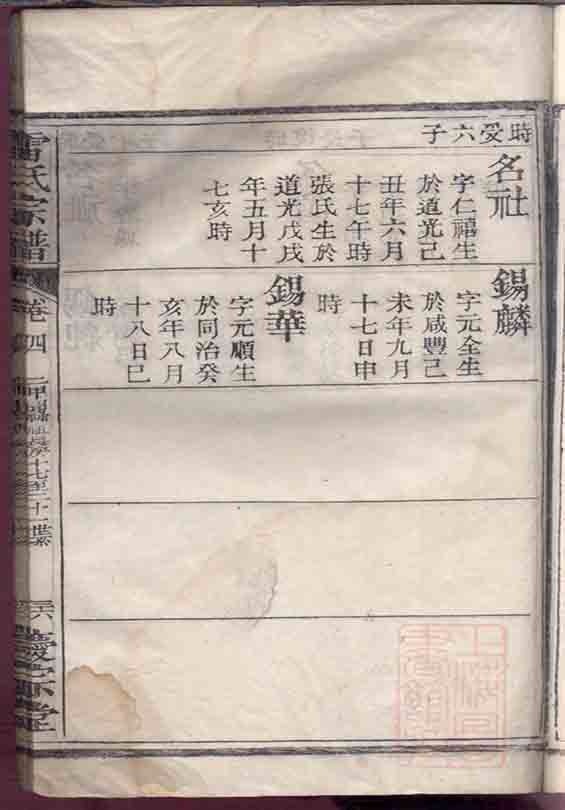 時受六子
名社
字仁禧生
於道光己
丑年六月
十七午時
張氏生於
道光戊戌
年五月十
七亥時
錫麟
字元全生
於咸豐己
未年九月
十七日申
時
錫華
字元順生
於同治癸
亥年八月
十八日巳
時
雷氏宗譜
卷四